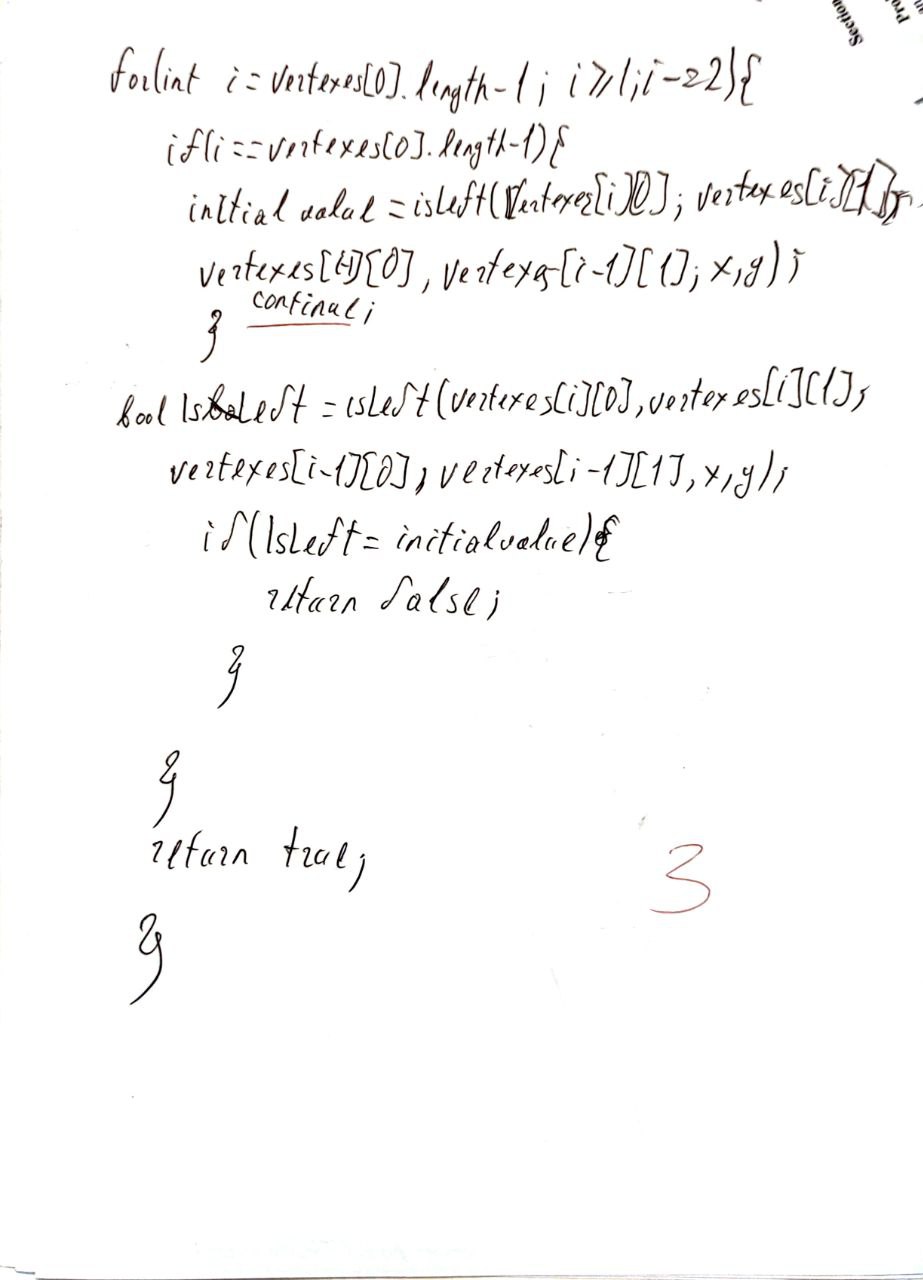 Section
Pro
for(int i = vertexes[0].length-1; i>=1; i-=2){
if(i==vertexes[0].length-1){
initial value = isLeft(vertexes[i][0]; vertexes[i][1],
vertexes[i-1][0], vertexes[i-1][1]; x,y);
continue;
}
bool IsLeft = isLeft(vertexes[i][0], vertexes[i][1],
vertexes[i-1][0], vertexes[i-1][1], x,y);
if(IsLeft = initialvalue){
return false;
}
}
return true;
3
}